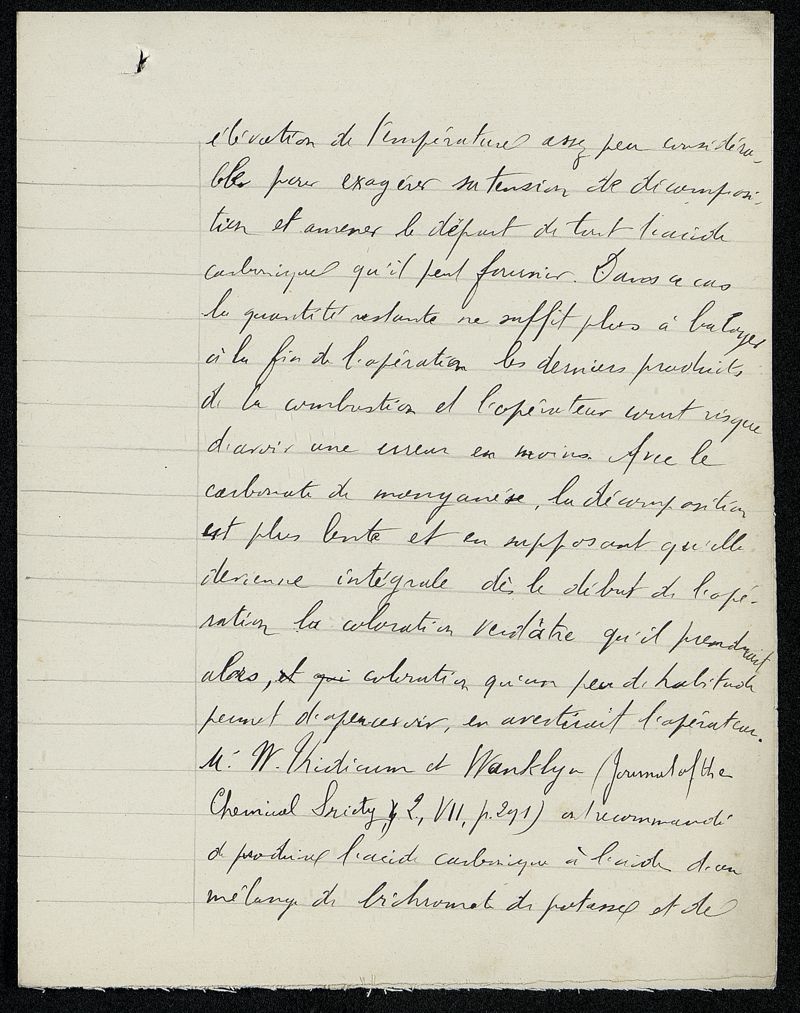 élévation de température assez peu considéra-
ble pour exagérer sa tension de décomposi-
tion et amener le départ de tout l'acide
carbonique qu'il peut fournir. Dans ce cas
la quantité restante ne suffit plus à balayer
à la fin de l'opération les derniers produits
de la combustion et l'opérateur court risque
d'avoir une erreur en moins. Avec le
carbonate de manganèse, la décomposition
est plus lente et en supposant qu'elle
devienne intégrale dès le début de l'opé-
ration la coloration verdâtre qu'il prendrait
alors, et qui coloration qu'un peu d'habitude
permet d'apercevoir, en avertirait l'opérateur.
M. W. et Wanklyn (Journal of the
Chemical Society, 2, VII, p. 291) ont recommandé
de produire l'acide carbonique à l'aide d'un
mélange de bichromate de potasse et de